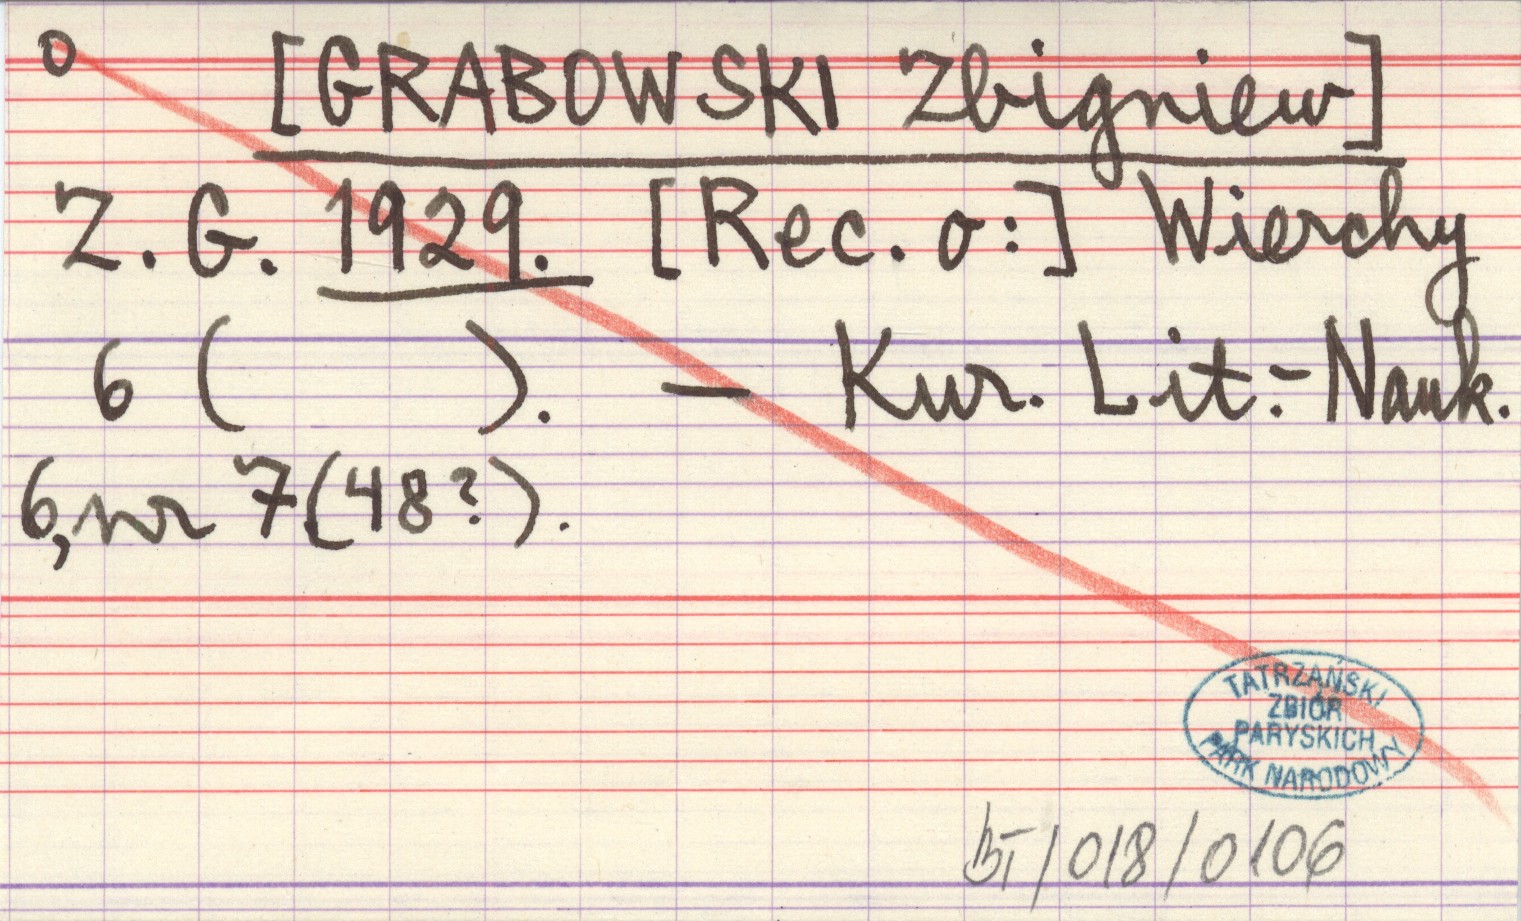 o [GRABOWSKI Zbigniew]
Z. G. 1929. [Rec. o:] Wierchy
6 ( ). — Kur. Lit.-Nauk.
6, nr 7(48?).
TATRZAŃSKI
ZBIÓR
PARYSKICH
PARK NARODOWY
BT/018/0106